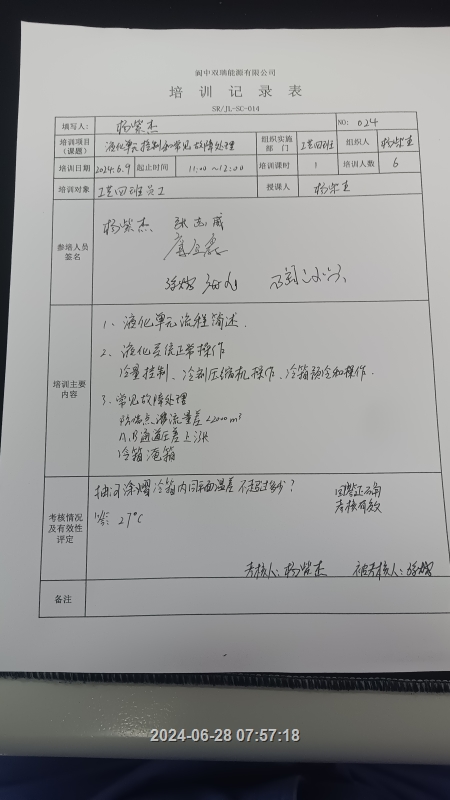 阆中双瑞能源有限公司
培 训 记 录 表
SR/JL-SC-014
填写人: 杨紫杰 NO: 024
培训项目（课题） 液化单元控制和常见故障处理 组织实施部门 工艺四班 组织人 杨紫杰
培训日期 2024.6.9 起止时间 11:00 ~12:00 培训课时 1 培训人数 6
培训对象 工艺四班员工 授课人 杨紫杰
参培人员签名
杨紫杰
培训主要内容
1、液化单元流程简述.
2、液化系统正常操作
冷量控制、冷剂压缩机操作、冷箱预冷和操作.
3、常见故障处理
A.B通道压差上涨
冷箱冻箱
考核情况及有效性评定
抽问涂熠冷箱内同平面温差不超过多少?
答: 27℃
回答正确
考核有效
考核人: 杨紫杰 被考核人: 涂熠
备注
2024-06-28 07:57:18